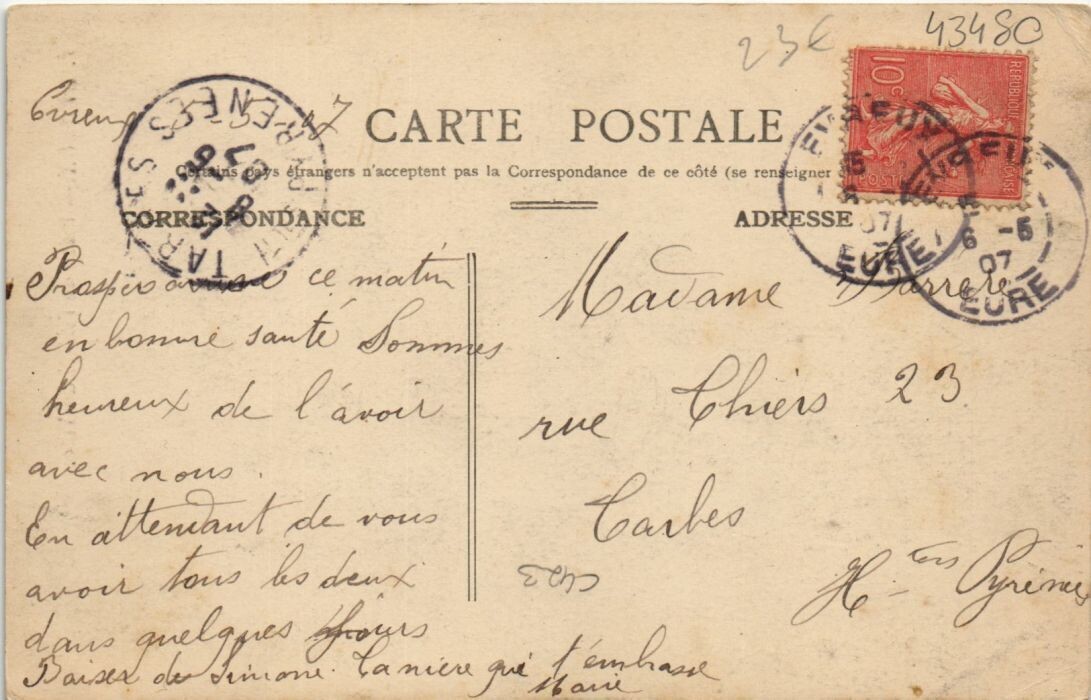 43480
23€
10c
REPUBLIQUE FRANÇAISE
POSTES
Evreux -5-07
CARTE POSTALE
Certains pays étrangers n'acceptent pas la Correspondance de ce côté (se renseigner
CORRESPONDANCE
ADRESSE
TARBES
PYRENEES
07
EVREUX
07
EURE
EVREUX
6 -5
07
EURE
Prosper arrivé ce matin
en bonne santé Sommes
heureux de l'avoir
avec nous.
En attendant de vous
avoir tous les deux
dans quelques jours
Baiser de Simone. Ta nièce qui t'embrasse
Marie
Madame Barrère
rue Thiers 23
Tarbes
Htes Pyrénées
C423